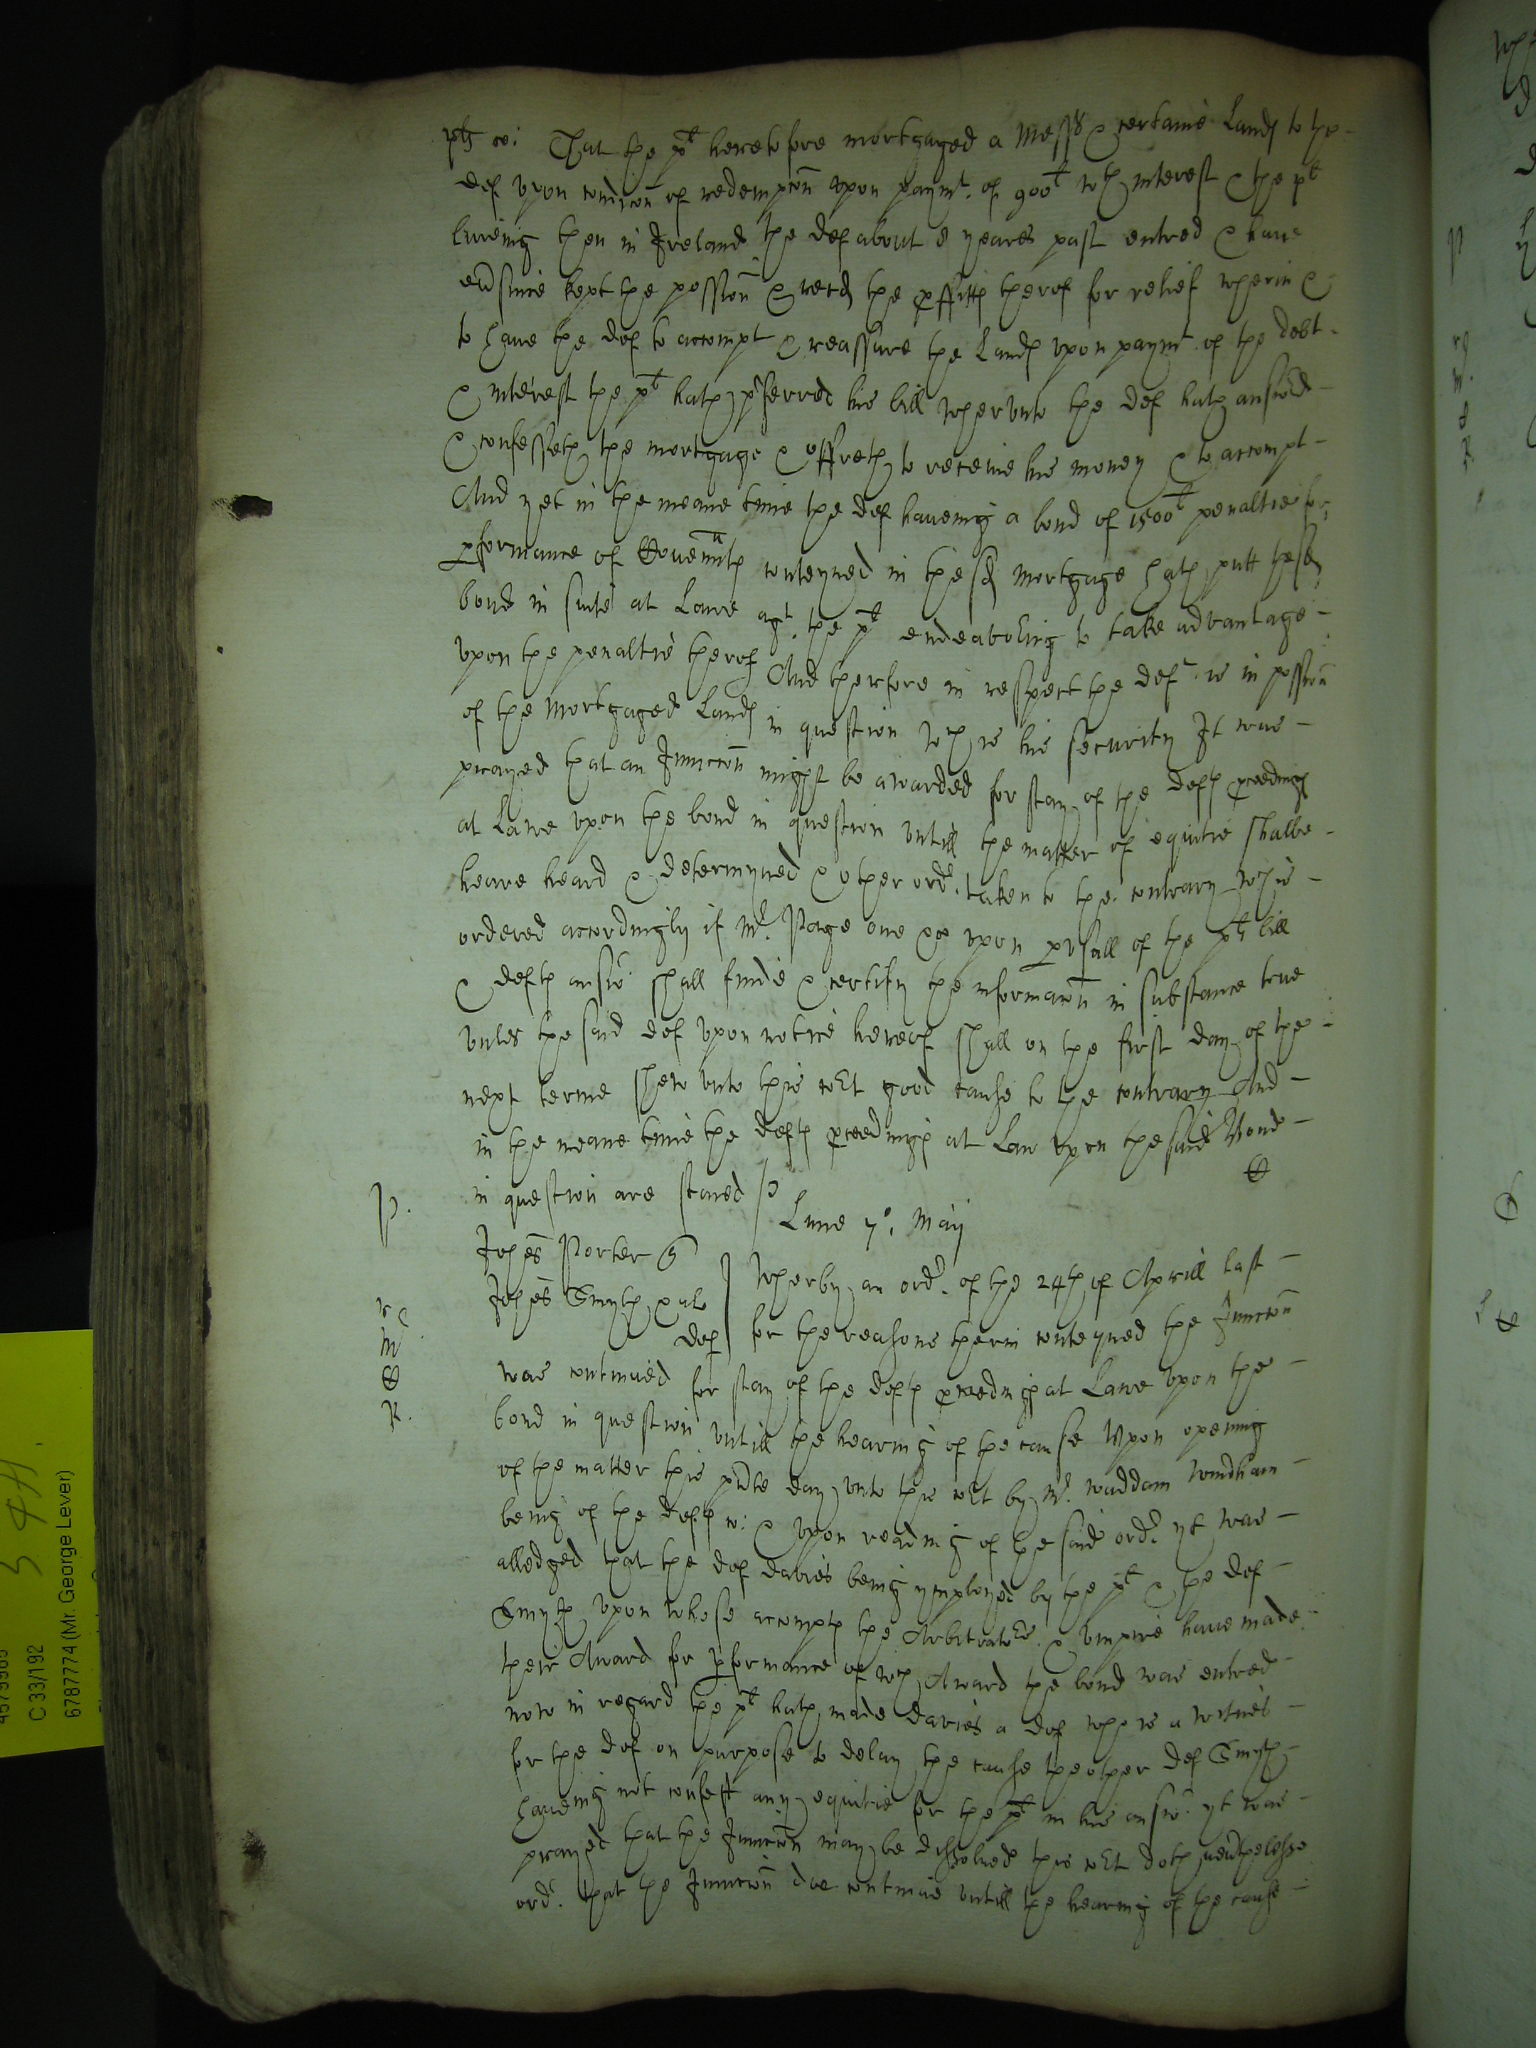 plts co: That the plt heretofore mortgaged a Messe & certaine Lands to the
def upon condicon of redempcon upon paymt. of 900l wth interest & the plt
liveing then in Ireland the def about 8 yeares past entred & have
ev'since kept the possion & recd the pffitts therof for relief wherin &
to have the def to accompt & reassure the Lands upon paymt of the debt
& interest the plt hath p'ferred his bill wherunto the def hath answ'ed
& confesseth the mortgage & offreth to receive his money & to accompt
And yet in the meane time the def haveing a bond of 1500l penaltie for
pformance of Covennts conteyned in the sd mortgage hath putt the sd
bond in suite at Lawe agt. the plt endeavoring to take advantage
upon the penaltie therof And therfore in respect the deft. is in possion
of the mortgaged Lands in question wch is his security It was
prayed that an Iniuccon might be awarded for stay of the defts pceedings
at Lawe upon the bond in question untill the matter of equitie shalbe
heare heard & determyned & other ordr. taken to the contrary wch is
ordered accordingly if Mr. Page one &c upon pusall of the plts bill
& defts answ' shall finde & certify the informacon in substance true
unles the said def upon notice hereof shall on the first day of the
next terme shew unto this Cort good cause to the contrary And
in the meane time the defts pceedings at Law upon the said Bond
in question are stayed
p.
Lune 7o. Maij
Johes Porter
Johes Smyth & al
def
Wherby an ordr. of the 24th of Aprill last
for the reasons therin conteyned the Iniuccon
was continued for stay of the defts pceedings at Lawe upon the
bond in question untill the hearing of the cause Upon opening
of the matter this p'nte day unto this Cort by Mr. Waddam Windham
being of the defts co: & upon reading of the said ordr. yt was
alledged that the def Davies being ymployed by the plt & the def
Smyth upon whose accompts the Arbitrators & Umpire have made
their Award for pformance of wch Award the bond was entred
now in regard the plt hath made Davies a def who is a witnes
for the def on purpose to delay the cause the other def Smyth
haveing not confest any equitie for the plt in his answ'. yt was
prayed that the Iniuccon may be dissolved this Cort doth nev'thelesse
ordr. that the Iniuccon doe continue untill the hearing of the cause
C 33/192
6787774 (Mr. George Lever)